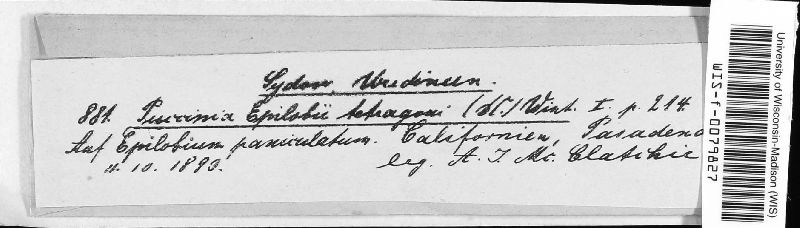 Sydow, Uredineen.
881. Puccinia Epilobii tetragoni (DC.) Wint. I. p. 214.
Auf Epilobium paniculatum. Californien, Pasadena
10. 1893. leg. A. J. Mc. Clatchie
University of Wisconsin-Madison (WIS)
WIS-f-0079827